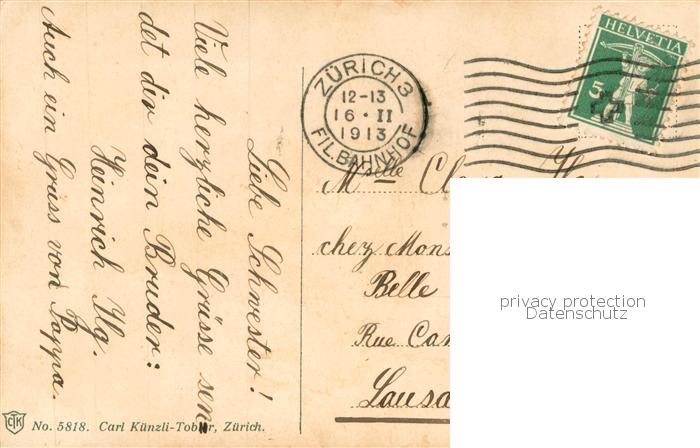 Liebe Schwester!
Viele herzliche Grüsse sen-
det dir dein Bruder:
Heinrich Hg.
Auch ein Gruss von Pappa.
ZÜRICH 3
12-13
16·II
1913
FIL.BAHNHOF
HELVETIA
5
Mselle
chez Mons
Belle
Rue Can
Lausa
privacy protection
Datenschutz
CTK
No. 5818. Carl Künzli-Tobler, Zürich.